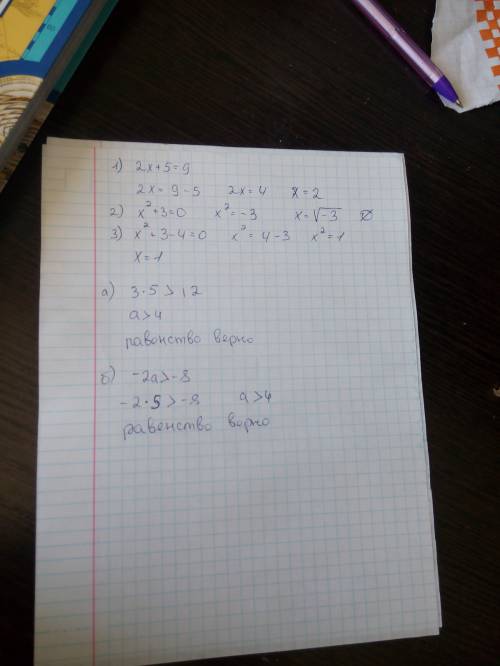 1) 2x+5=9
2x = 9-5 2x = 4 x = 2
2) x²+3=0 x²=-3 x=√-3 ∅
3) x²+3-4=0 x²= 4-3 x²=1
x=1
а) 3·5 > 12
a>4
равонство верно
б) -2a>-8
-2·5 >-8 a>4
равенство верно